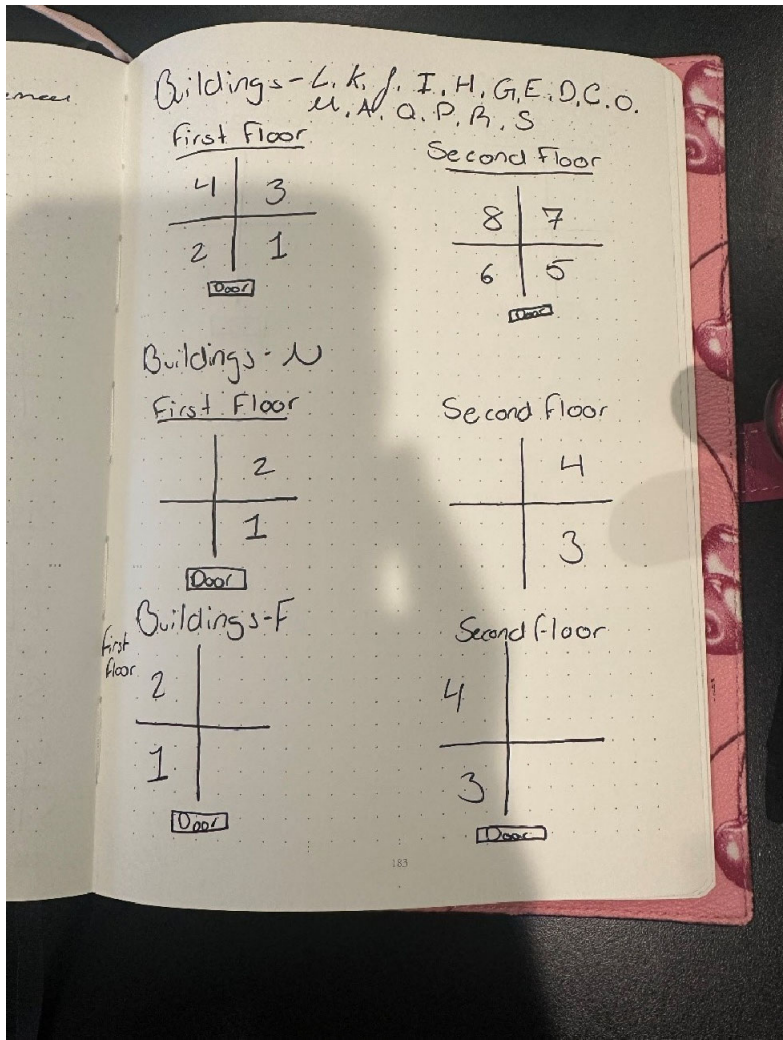 Buildings - L, K, J, I, H, G, E, D, C, O,
M, A, Q, P, R, S
First Floor
4 3
2 1
Door
Second Floor
8 7
6 5
Door
Buildings - N
First Floor
2
1
Door
Second Floor
4
3
Buildings-F
First
floor
2
1
Door
Second floor
4
3
Door
183